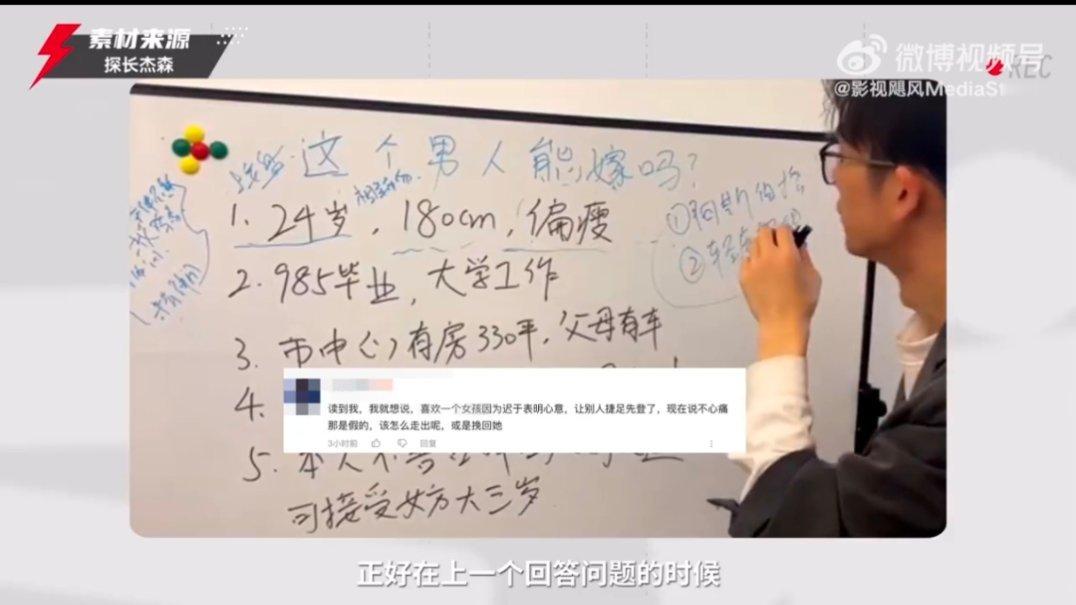 素材来源
探长杰森
微博视频号
REC
@影视飓风MediaSt
这个男人能嫁吗?
1. 24岁, 180cm, 偏瘦
2. 985毕业, 大学工作
3. 市中心有房330平, 父母有车
4.
读到我，我就想说，喜欢一个女孩因为迟于表明心意，让别人捷足先登了，现在说不心痛
那是假的，该怎么走出呢，或是挽回她
3小时前 回复
5. 本人不
可接受女方大三岁
①
②
正好在上一个回答问题的时候